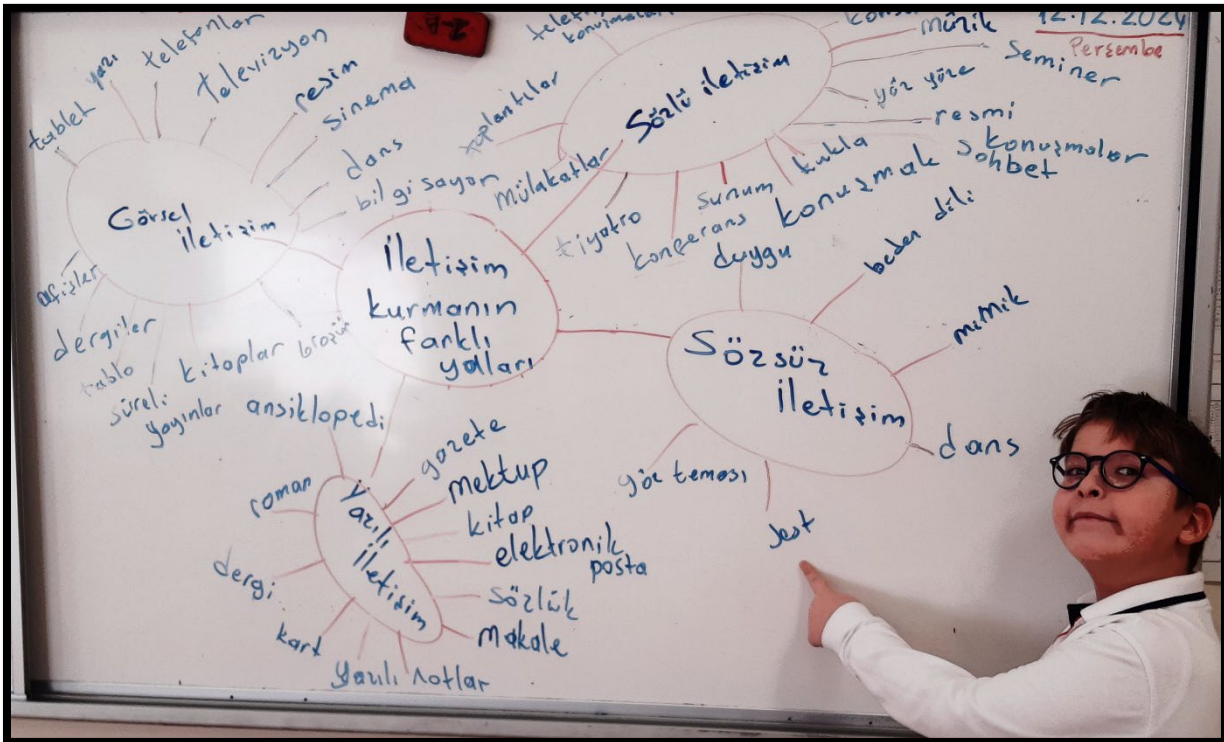 12.12.2024
Perşembe
2-B
İletişim
kurmanın
farklı
yolları
Görsel
İletişim
tablet
yazı
telefonlar
Televizyon
resim
Sinema
dans
bilgisayar
afişler
dergiler
tablo
süreli
yayınlar
kitaplar
Sözlü iletişim
konuşmaları
toplantılar
mülakatlar
tiyatro
konferans
sunum
kukla
konuşmak
sohbet
resmi
konuşmalar
yüz yüze
Seminer
müzik
Sözsüz
İletişim
duygu
beden dili
mimik
dans
Jest
göz teması
Yazılı
İletişim
ansiklopedi
gazete
mektup
kitap
elektronik
posta
Sözlük
makale
yazılı notlar
kart
dergi
roman